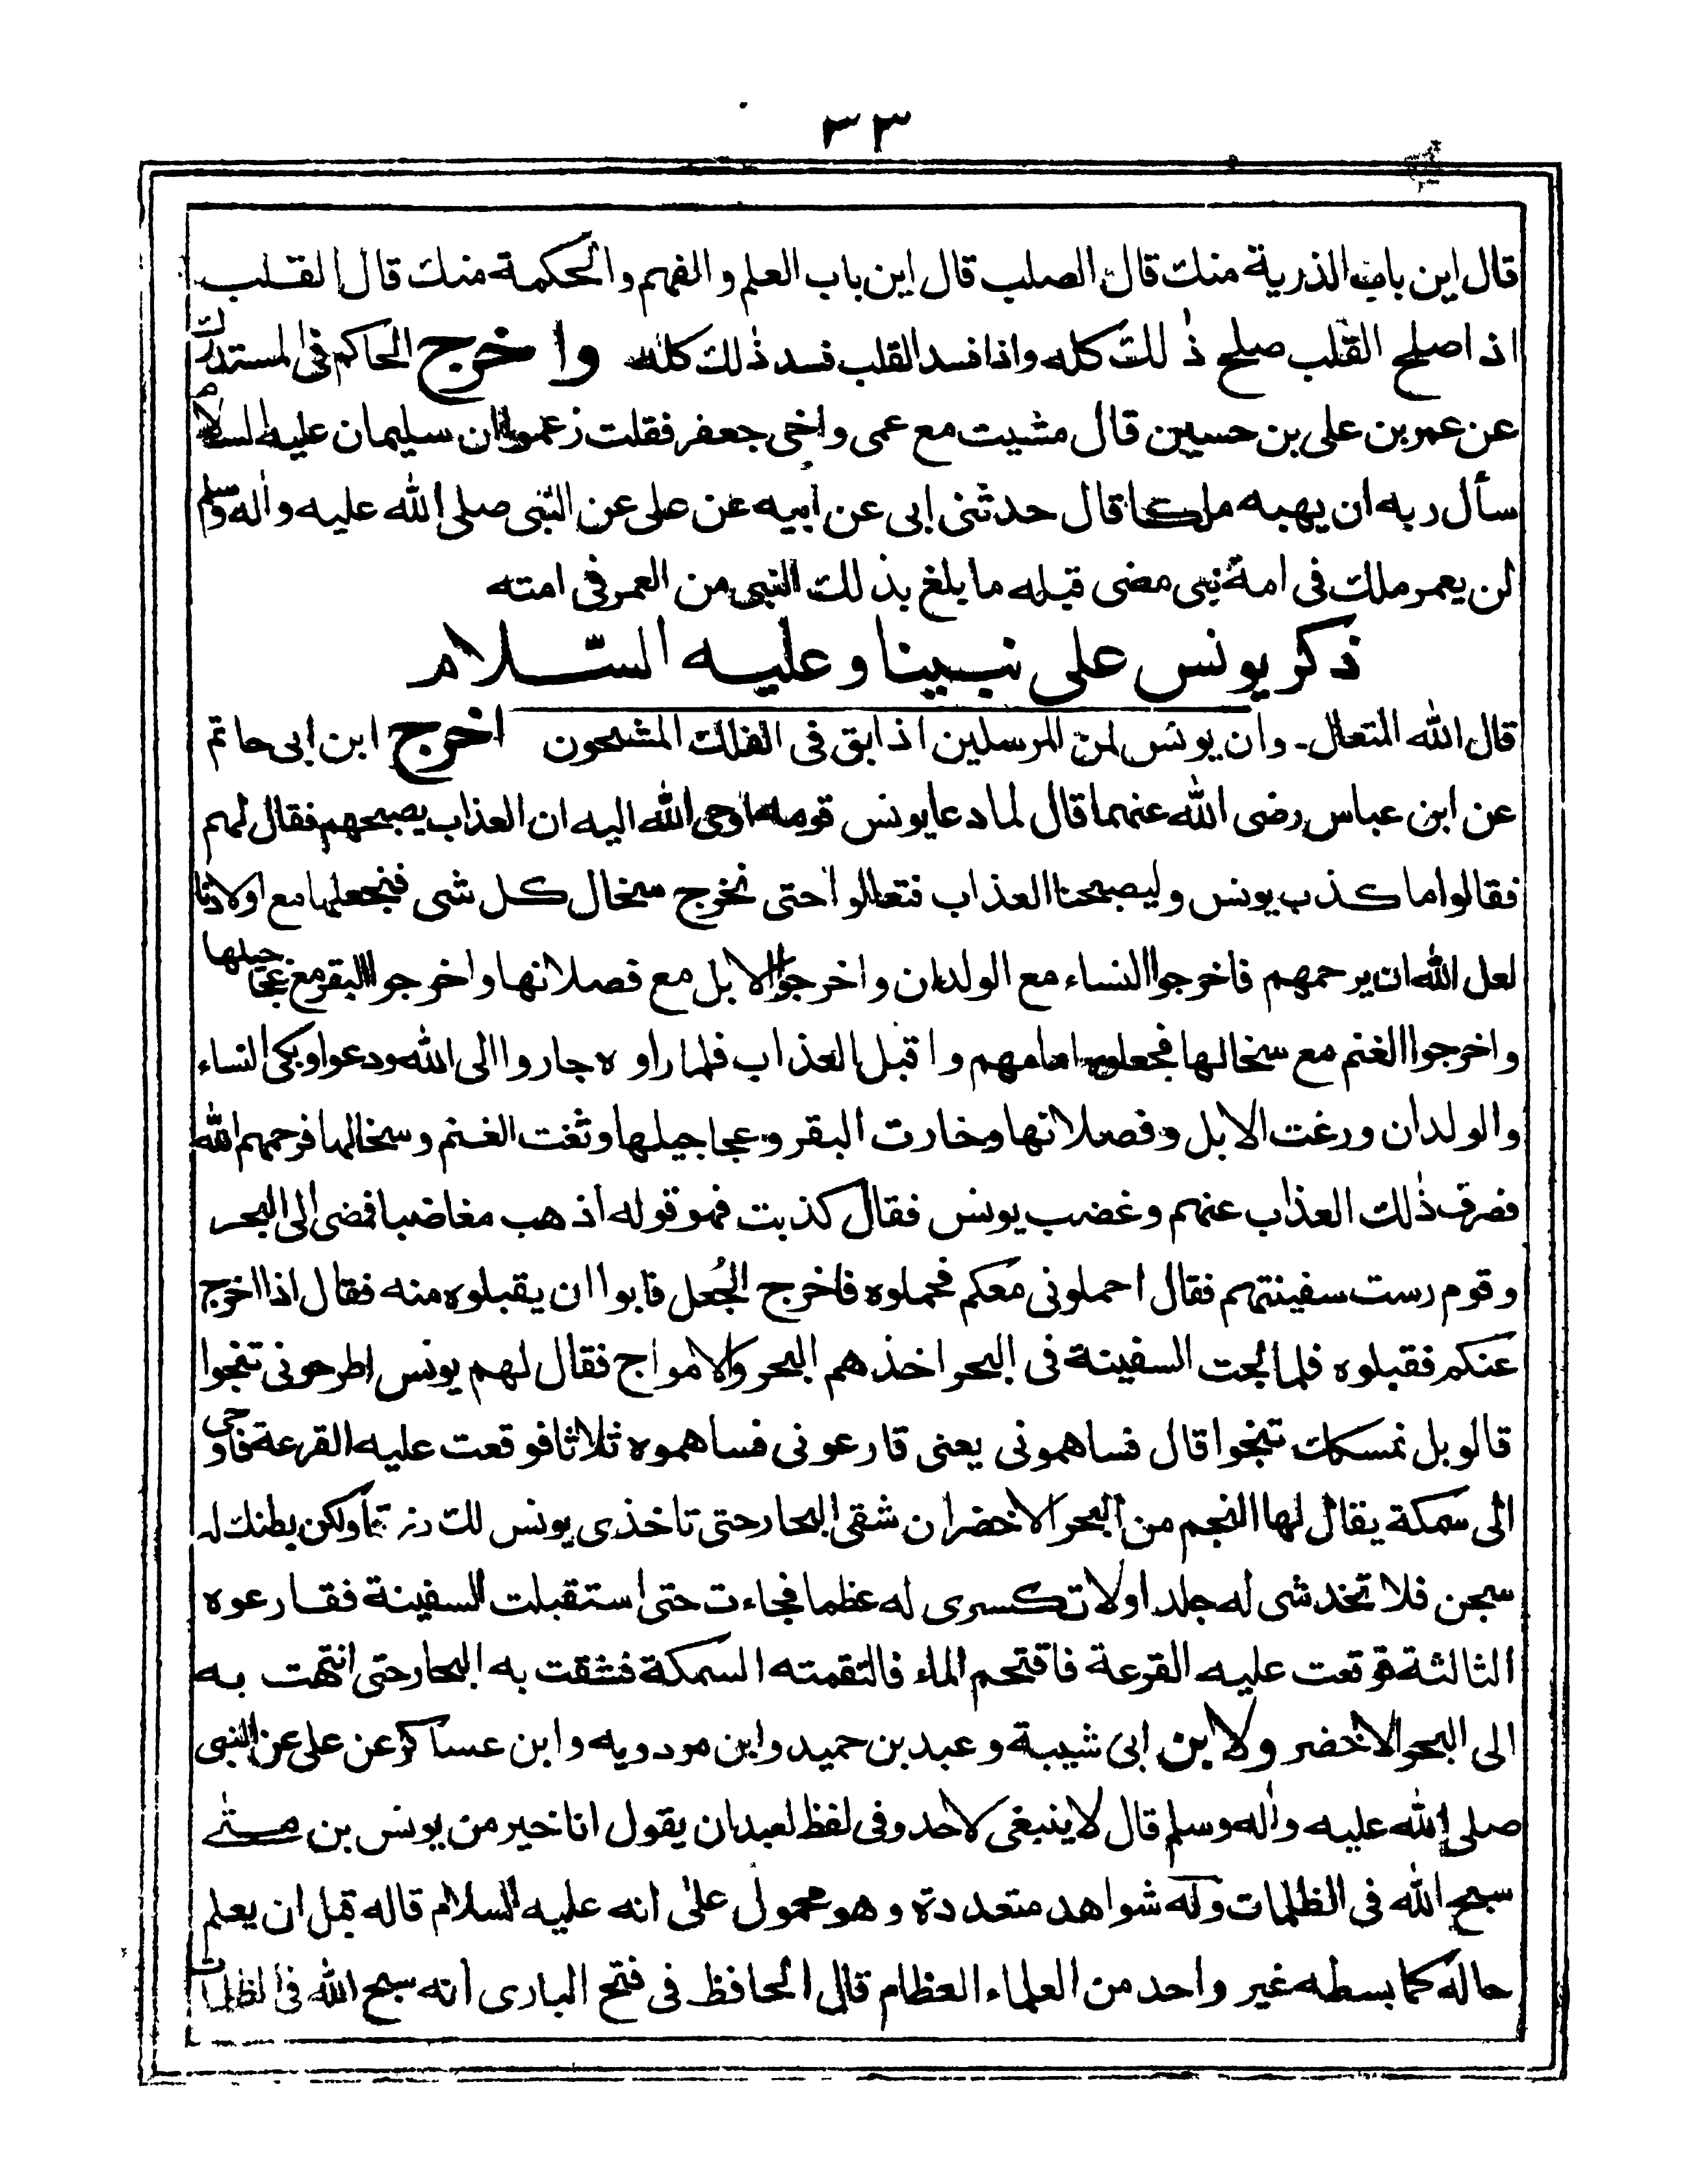 ٣٣
قال اين باب الذرية منك قال الصلب قال اين باب العلم و الفهم و الحكمة منك قال القلب
اذ اصلح القلب صلح ذٰلك كله واذا فسد القلب فسد ذٰلك كله واخرج الحاكم فى المستدرك
عن عمر بن على بن حسين قال مشيت مع عمى واخى جعفر فقلت زعموا ان سليمان عليه السلام
سأل ربه ان يهبه ملكا قال حدثنى ابى عن ابيه عن على عن النبى صلى الله عليه واٰله وسلم
لن يعمر ملك فى امة نبى مضى قبله ما بلغ بذلك النبى من العمر فى امته
ذكر يونس على نبينا وعليه السّلام
قال الله المتعال۔ وان يونس لمن المرسلين اذ ابق فى الفلك المشحون اخرج ابن ابى حاتم
عن ابن عباس رضى الله عنهما قال لما دعا يونس قومه اوحى الله اليه ان العذاب يصبحهم فقال لهم
فقالوا ما كذب يونس وليصبحنا العذاب فتعالوا حتى نخرج سخال كل شى فنجعلها مع اولادنا
لعل الله ان يرحمهم فاخرجوا النساء مع الولدان واخرجوا الابل مع فصلانها واخرجوا البقر مع عجاجيلها
واخرجوا الغنم مع سخالها فجعلوه امامهم واقبل العذاب فلما راوه جاروا الى الله ودعوا وبكى النساء
والولدان ورغت الابل وفصلانها وخارت البقر وعجاجيلها وثغت الغنم وسخالها فرحمهم الله
فصرف ذٰلك العذاب عنهم وغضب يونس فقال كذبت فهو قوله اذ هب مغاضبا فمضى الى البحر
وقوم رست سفينتهم فقال احملونى معكم فحملوه فاخرج الجُعل فابوا ان يقبلوه منه فقال اذا اخرج
عنكم فقبلوه فلما لجت السفينة فى البحر اخذهم البحر والامواج فقال لهم يونس اطرحونى تنجوا
قالو بل نمسكك تنجوا قال فساهمونى يعنى قارعونى فساهموه ثلاثا فوقعت عليه القرعة فاوحى
الى سمكة يقال لها النجم من البحر الاخضر ان شقى البحار حتى تاخذى يونس لك رزقا ولكن بطنك له
سجن فلا تخدشى له جلد اولا تكسرى له عظما فجاءت حتى استقبلت السفينة فقارعوه
الثالثة فوقعت عليه القرعة فاقتحم الماء فالتقمته السمكة فشقت به البحار حتى انتهت به
الى البحر الاخضر ولابن ابى شيبة وعبد بن حميد وابن مردويه وابن عساكر عن على عن النبى
صلى الله عليه واٰله وسلم قال لا ينبغى لاحد وفى لفظ لعبد ان يقول انا خير من يونس بن متٰى
سبح الله فى الظلمات وله شواهد متعددة وهو محمول علىٰ انه عليه السلام قاله قبل ان يعلم
حاله كما بسطه غير واحد من العلماء العظام قال الحافظ فى فتح البارى انه سبح الله فى الظلمات